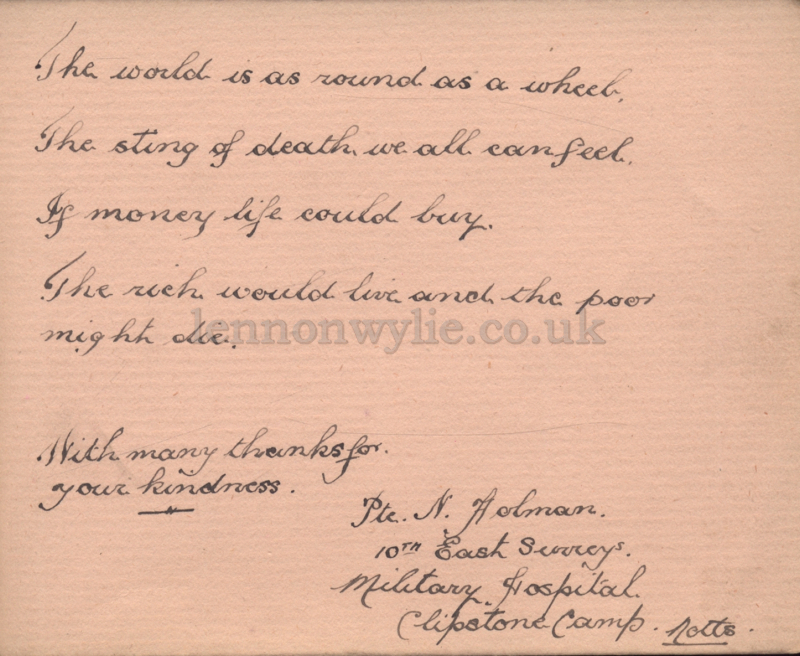 The world is as round as a wheel.
The sting of death we all can feel.
If money life could buy.
The rich would live and the poor
might die.
lennonwylie.co.uk
With many thanks for
your kindness.
Pte. N. Holman.
10TH East Surreys.
Military Hospital.
Clipstone Camp. Notts.